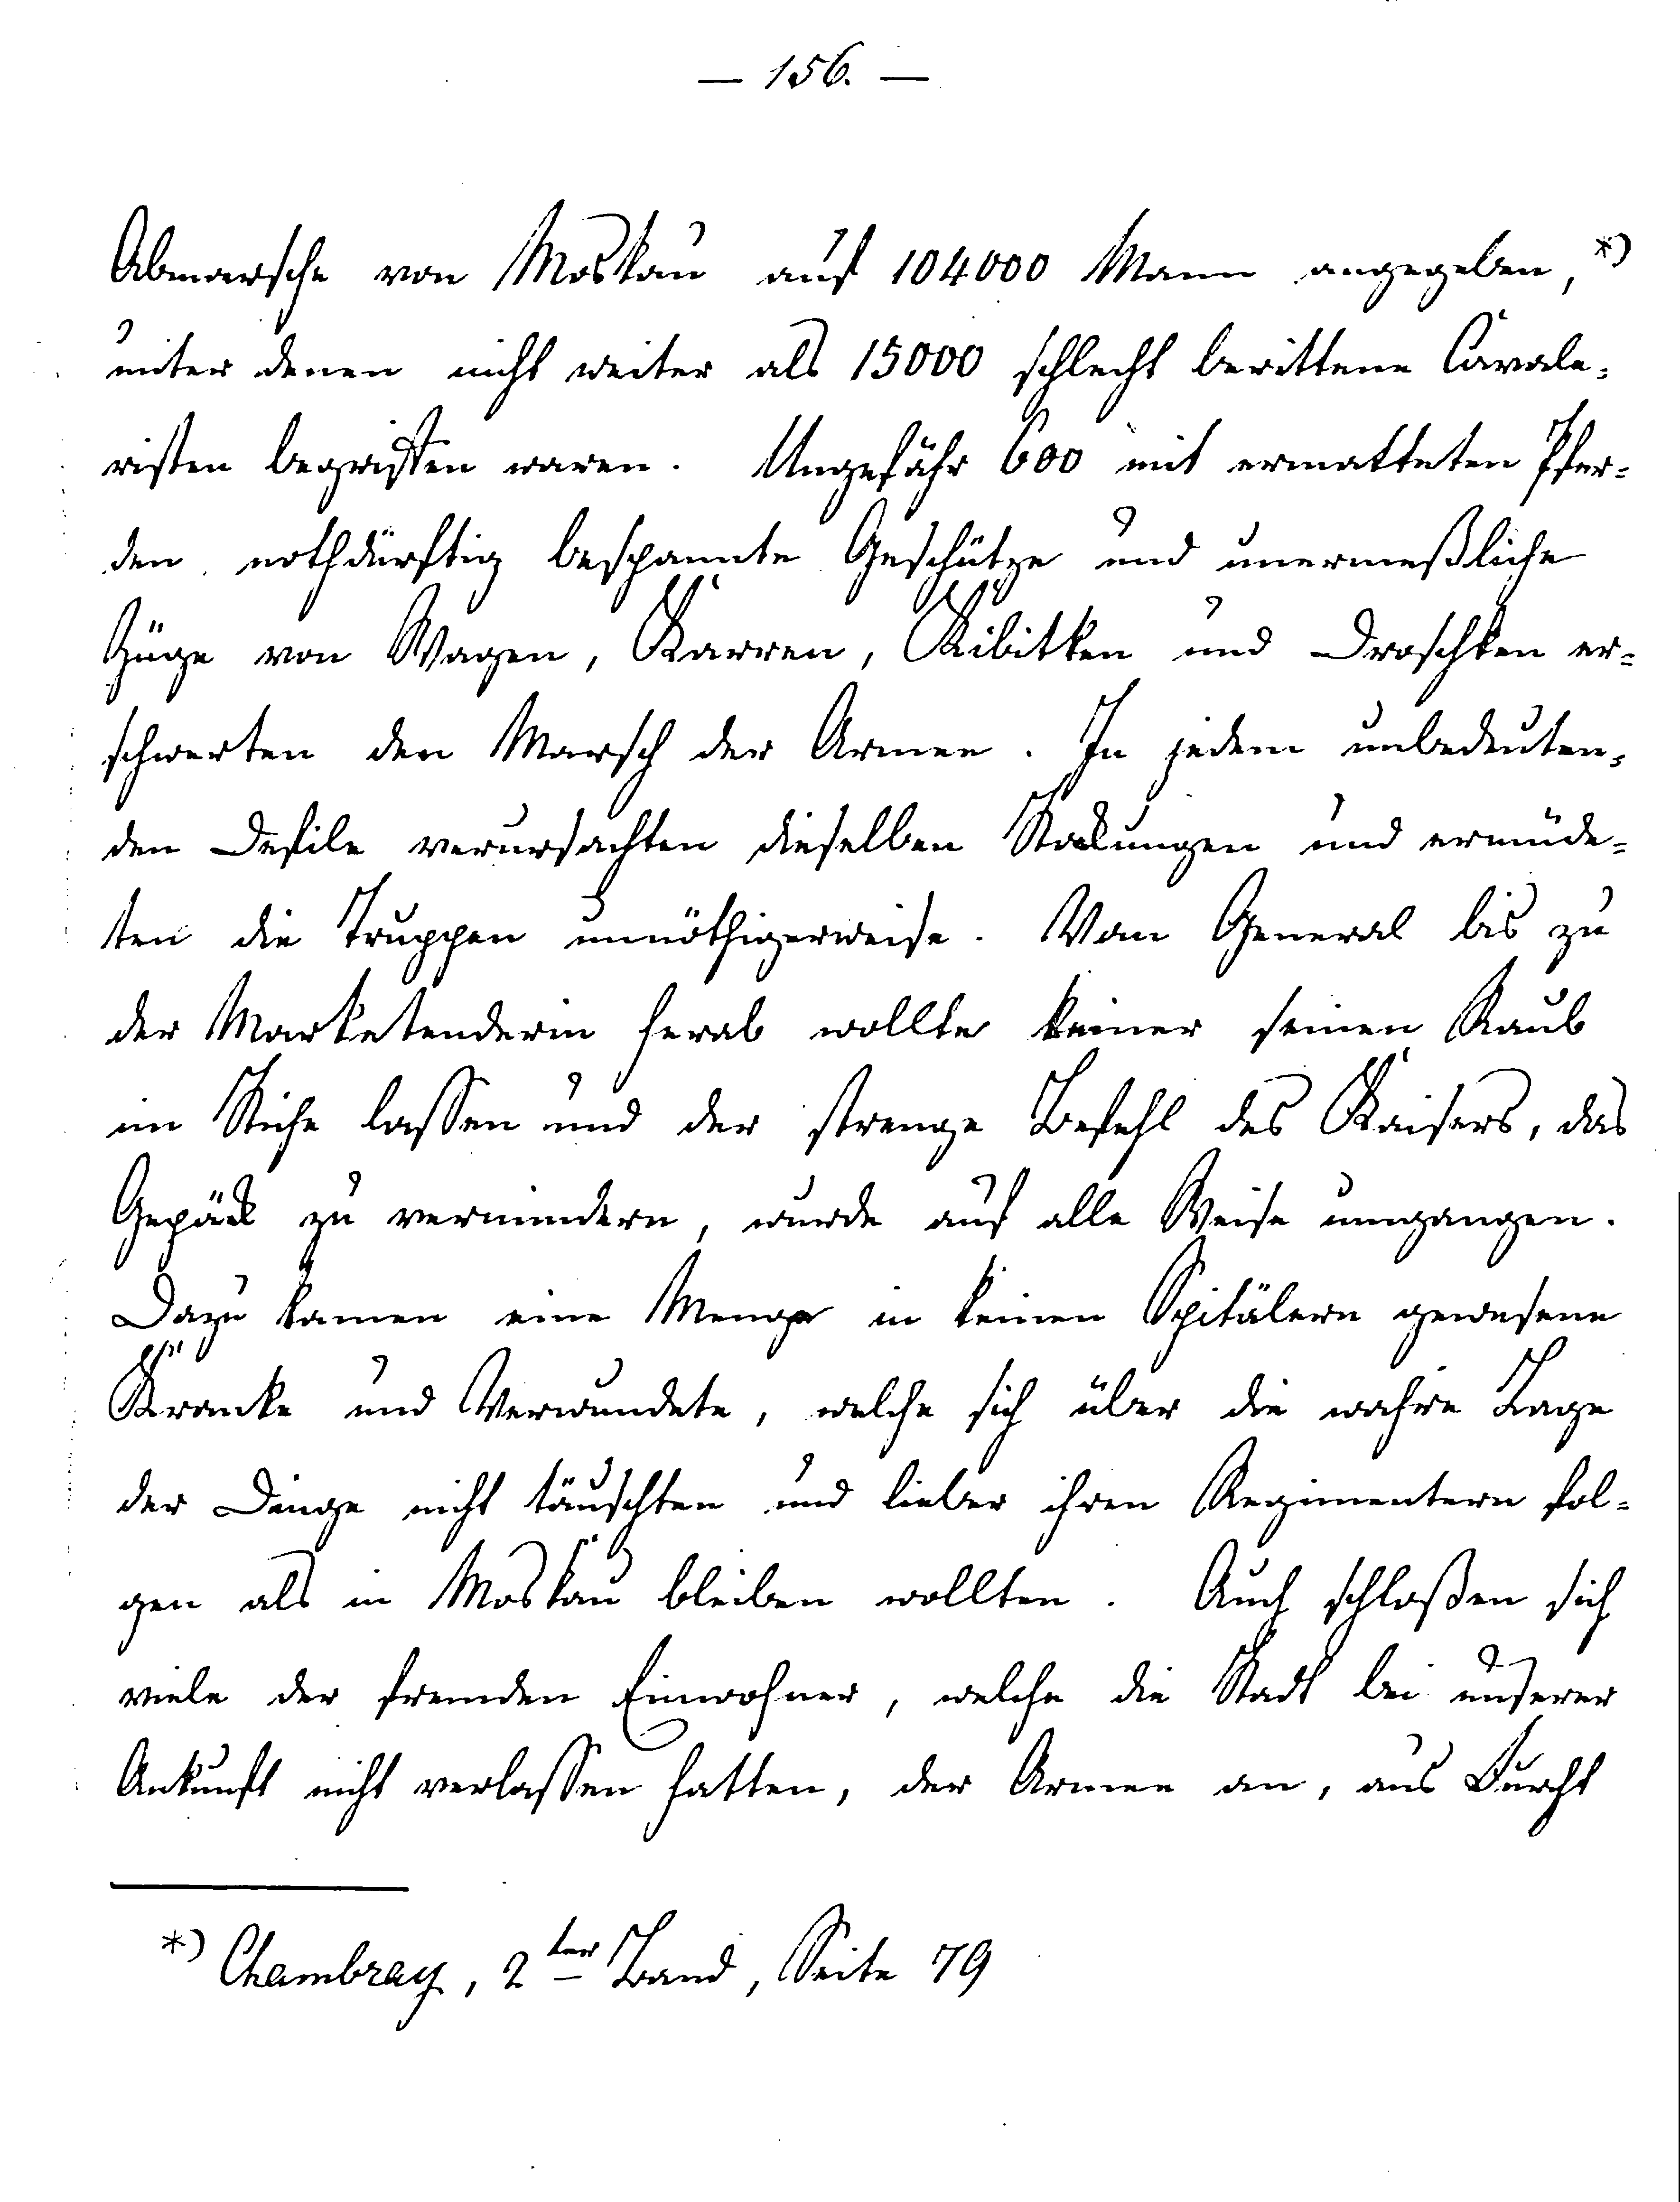 — 156. —
Abmarsche von Moskau auf 104000 Mann angegeben, *)
unter denen nicht weiter als 15000 schlecht berittene Cavale-
risten begriffen waren. Ungefähr 600 mit ermatteten Pfer-
den nothdürftig bespannte Geschütze und unermeßliche
Züge von Wagen, Karren, Kibitken und Droschken er-
schwerten den Marsch der Armee. In jedem unbedeuten-
den Defile verursachten dieselben Stockungen und ermüde-
ten die Truppen unnöthigerweise. Vom General bis zu
der Marketenderin herab wollte keiner seinen Raub
im Stiche lassen und der strenge Befehl des Kaisers, das
Gepäck zu vermindern, wurde auf alle Weise umgangen.
Dazu kamen eine Menge in keinen Spitälern gewesene
Kranke und Verwundete, welche sich über die wahre Lage
der Dinge nicht täuschten und lieber ihren Regimentern fol-
gen als in Moskau bleiben wollten. Auch schloßen sich
viele der fremden Einwohner, welche die Stadt bei unserer
Ankunft nicht verlassen hatten, der Armee an, aus Furcht
*) Chambray, 2ter Band, Seite 79